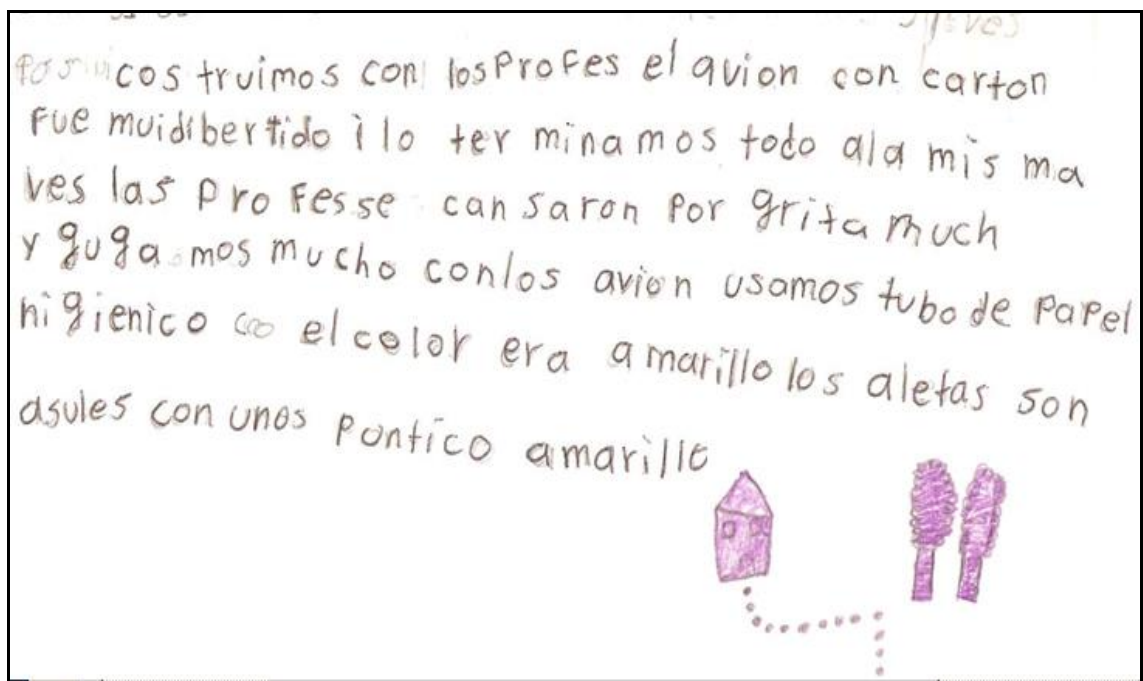 cos truimos con losprofes el avion con carton
Fue muidibertido i lo ter minamos todo ala mis ma
ves las pro fes se can saron por grita much
y guga mos mucho conlos avion usamos tubo de papel
higienico el color era a marillo los aletas son
asules con unos pontico amarillo